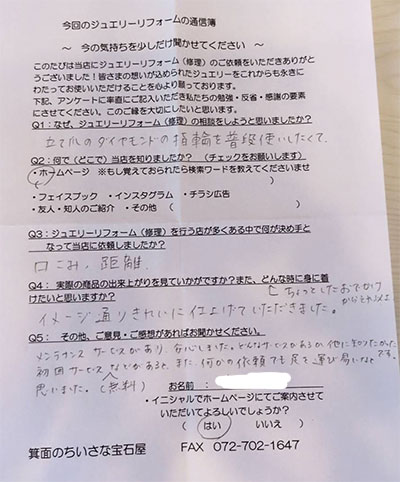 今回のジュエリーリフォームの通信簿
～ 今の気持ちを少しだけ聞かせてください ～
このたびは当店にジュエリーリフォーム（修理）のご依頼をいただきありがと
うございました！皆さまの想いが込められたジュエリーをこれからも永きに
わたってお使いいただけることを心より願っております。
下記、アンケートに率直にご記入いただき私たちの勉強・反省・感謝の要素
にさせてください。このご縁を大切にしたいと思います。
Q1：なぜ、ジュエリーリフォーム（修理）の相談をしようと思いましたか？
立て爪のダイヤモンドの指輪を普段使いしたくて。
Q2：何で（どこで）当店を知りましたか？ （チェックをお願いします）
・ホームページ ※もし覚えておられたら検索ワードを教えてくださいませ
（ ）
・フェイスブック ・インスタグラム ・チラシ広告
・友人・知人のご紹介 ・その他（ ）
Q3：ジュエリーリフォーム（修理）を行う店が多くある中で何が決め手と
なって当店に依頼しましたか？
口こみ・距離
Q4： 実際の商品の出来上がりを見ていかがですか？また、どんな時に身に着
けたいと思いますか？
ちょっとしたおでかけ
イメージ通りきれいに仕上げていただきました。
Q5： その他、ご意見・ご感想があればお聞かせください。
メンテナンスサービスがあり、安心しました。どんなサービスがあるか他に知りたかった
初回サービスなどがあると、また、何かの依頼でも足を運び易いなと
思いました。（無料）
です。
お名前：
・イニシャルでホームページにてご案内させて
いただいてよろしいでしょうか？
（ はい いいえ ）
箕面のちいさな宝石屋 FAX 072-702-1647